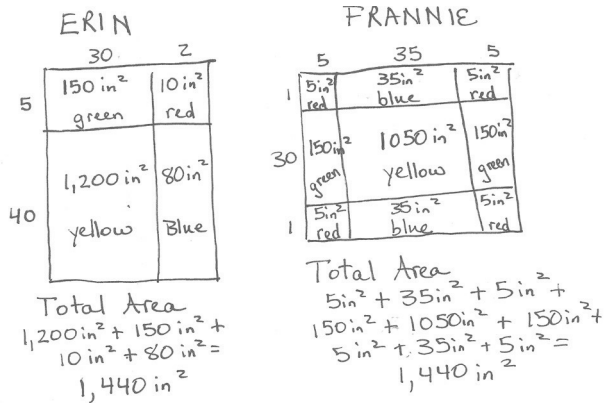 ERIN
30 2
5
150 in²
green
10 in²
red
40
1,200 in²
yellow
80 in²
Blue
Total Area
1,200 in² + 150 in² +
10 in² + 80 in² =
1,440 in²
FRANNIE
5 35 5
1
5in²
red
35in²
blue
5in²
red
30
150in²
green
1050 in²
yellow
150in²
green
1
5in²
red
35 in²
blue
5in²
red
Total Area
5in² + 35in² + 5in² +
150in² + 1050in² + 150in² +
5in² + 35in² + 5in² =
1,440 in²